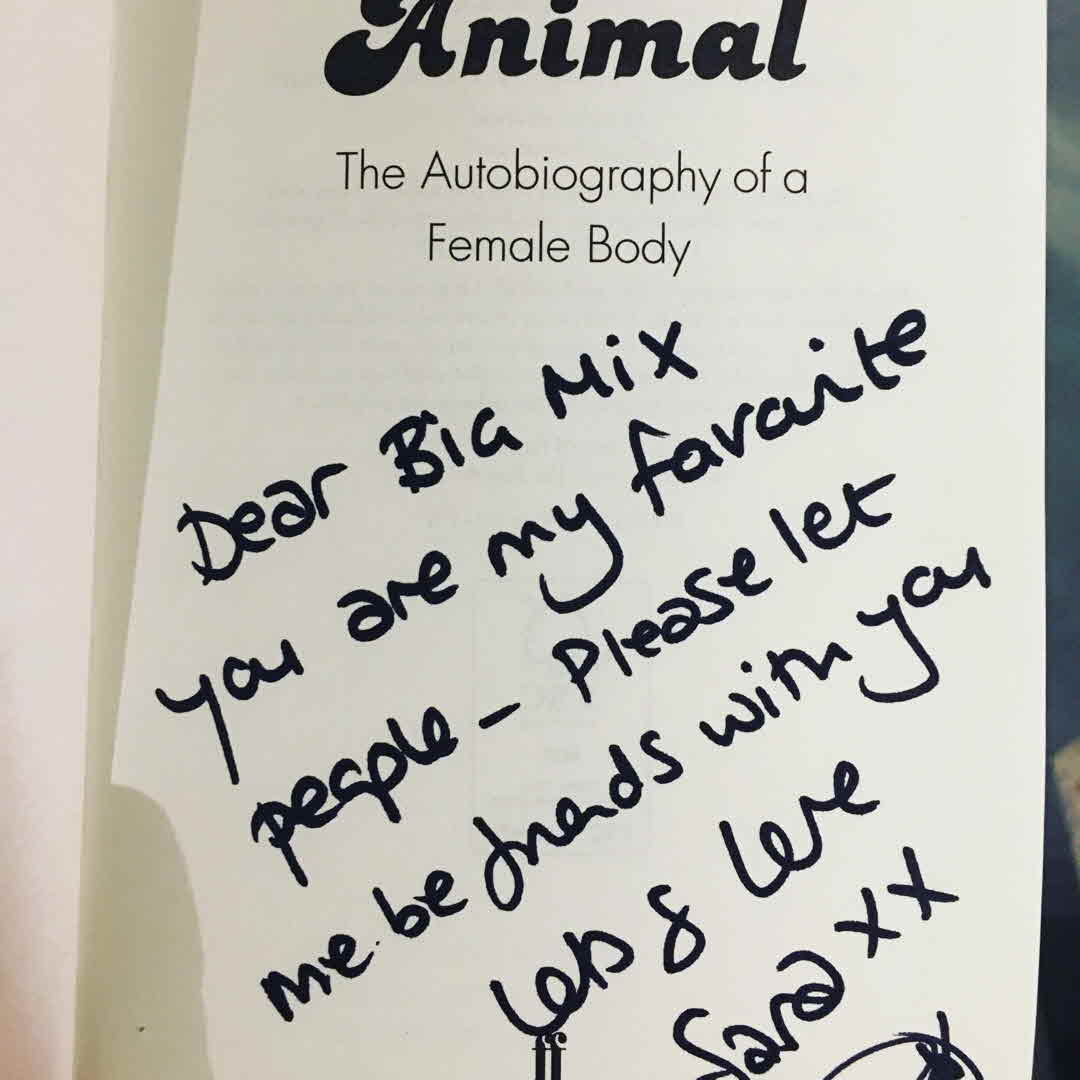 Animal
The Autobiography of a
Female Body
Dear Big Mix
you are my favourite
people - Please let
me be friends with you
Lots of Love
Sara xx
ff